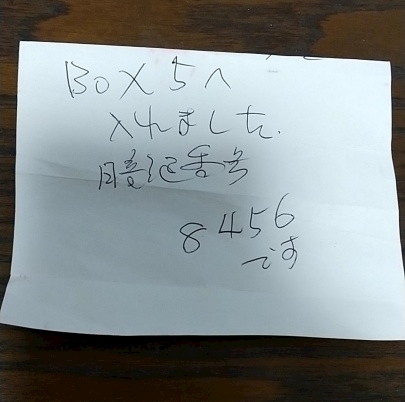 BOX5へ
入れました.
暗証番号
8456
です